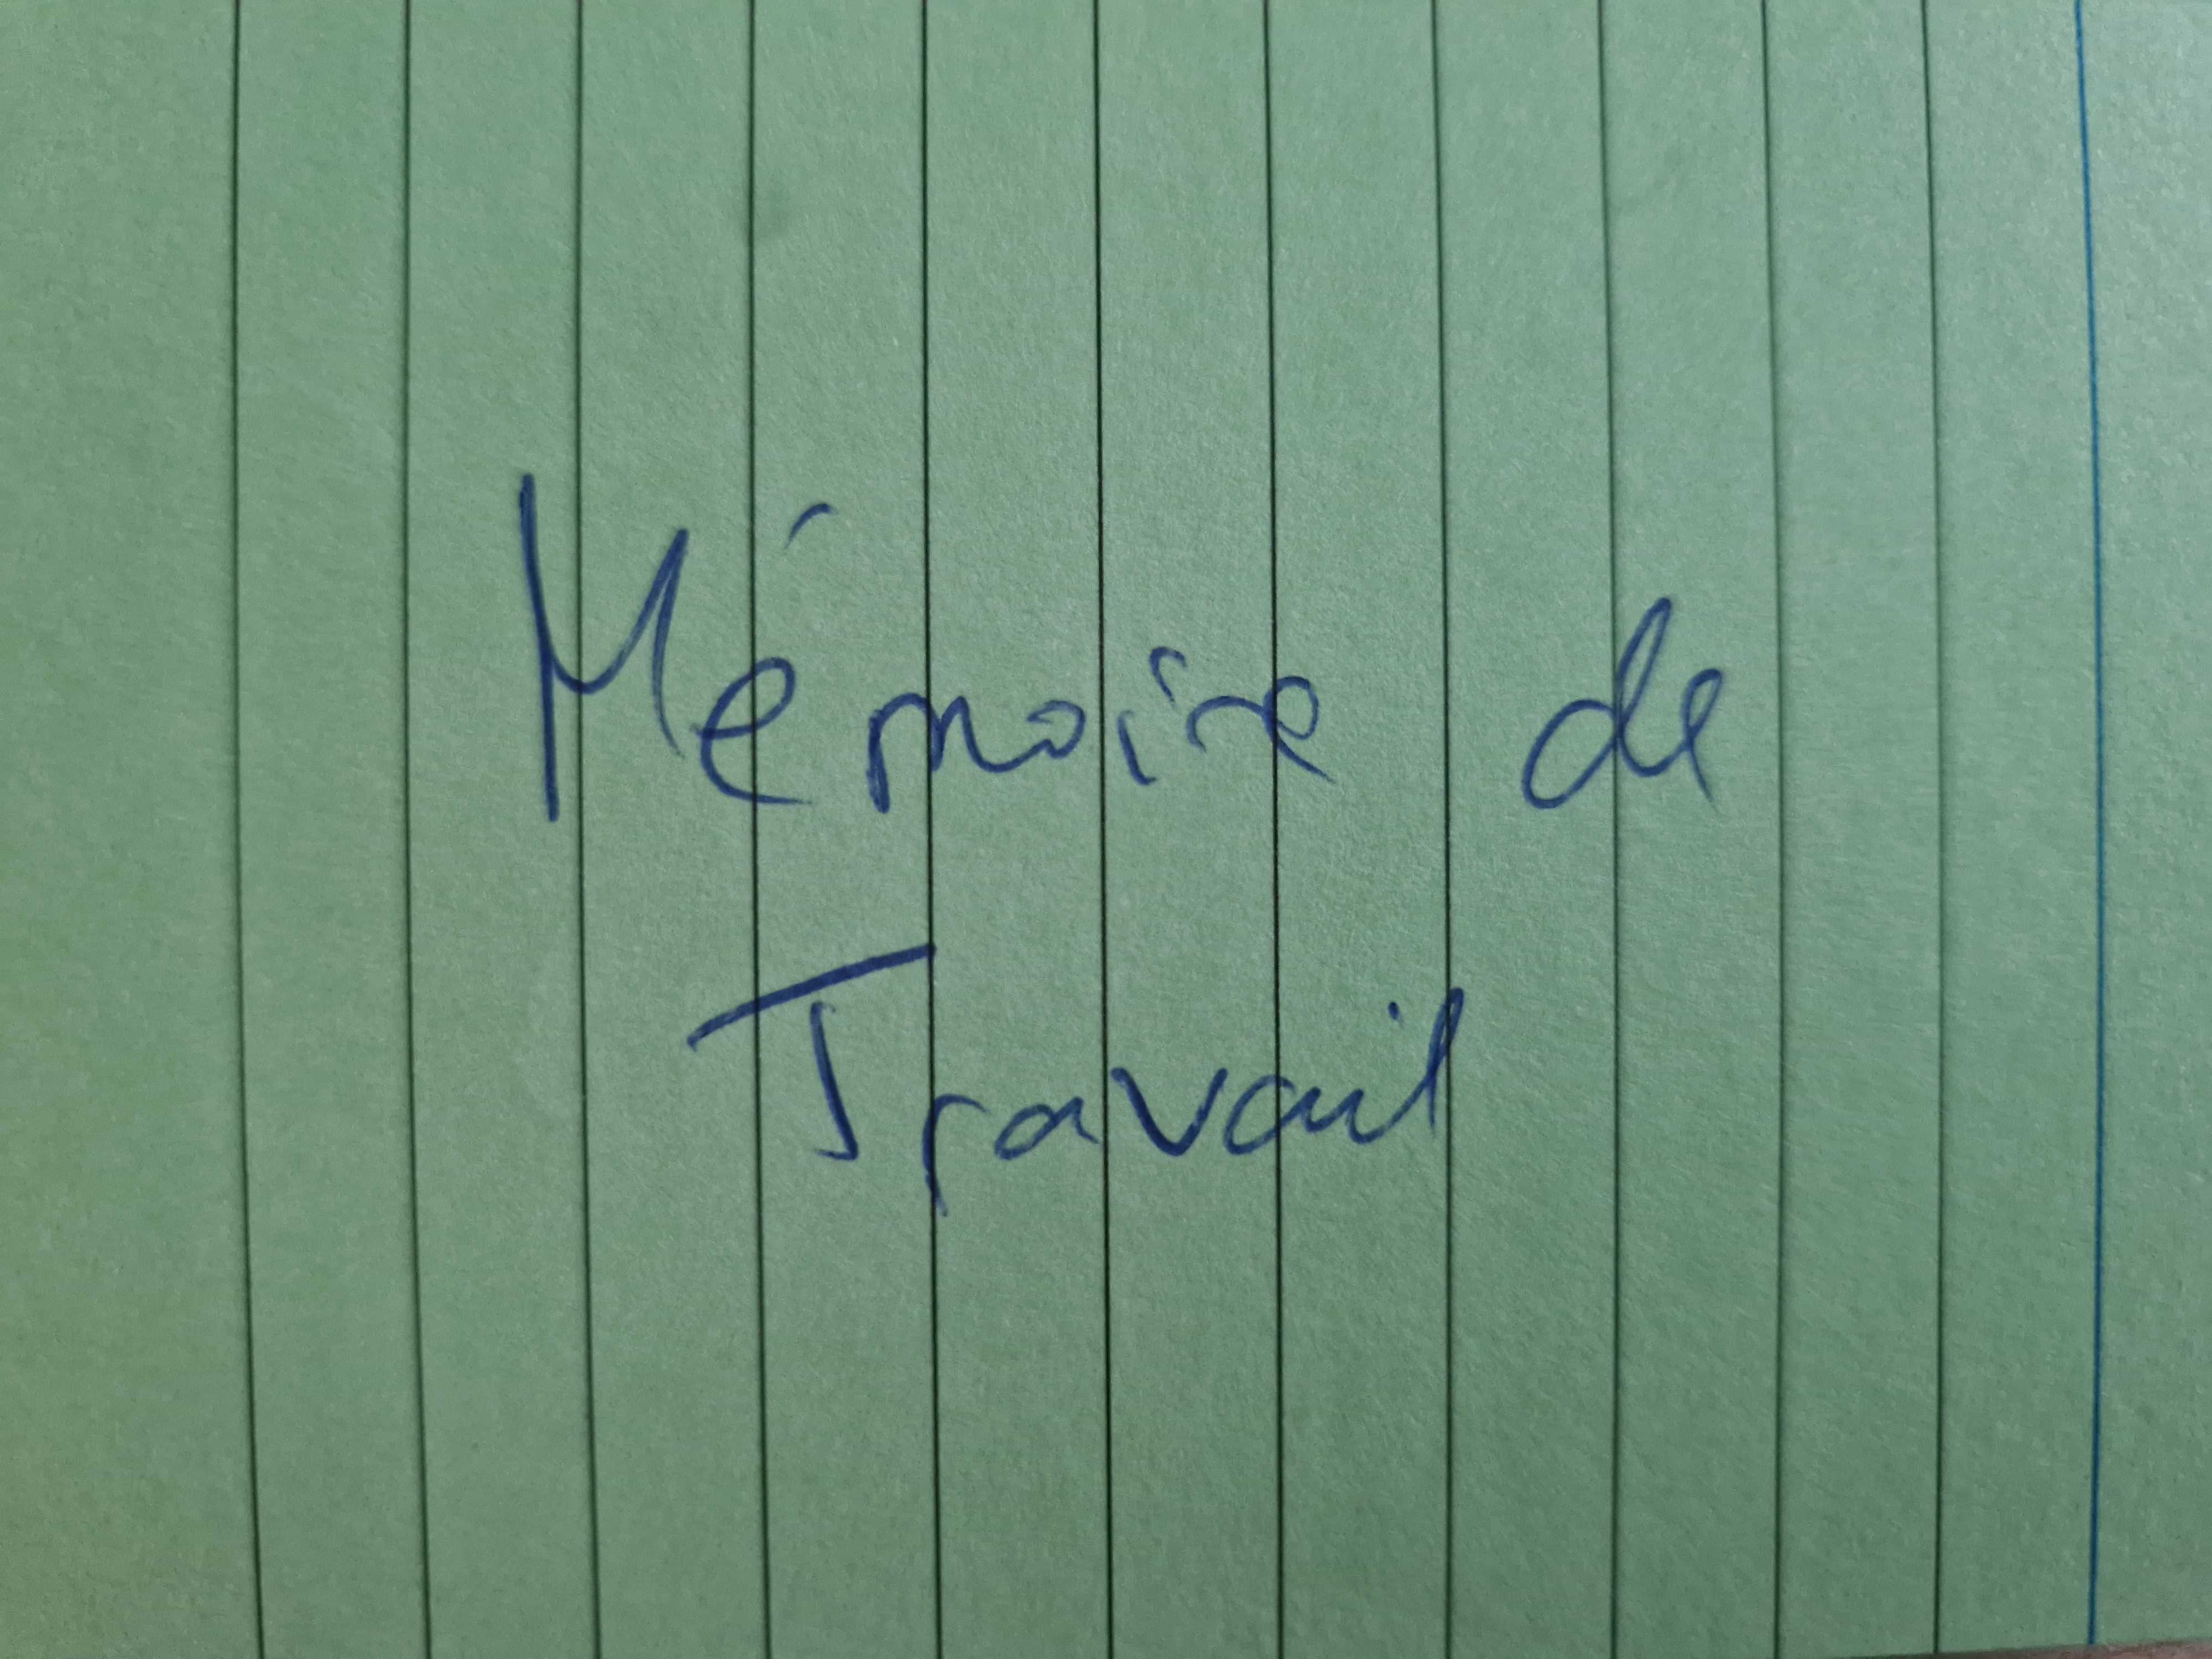 Mémoire de
Travail